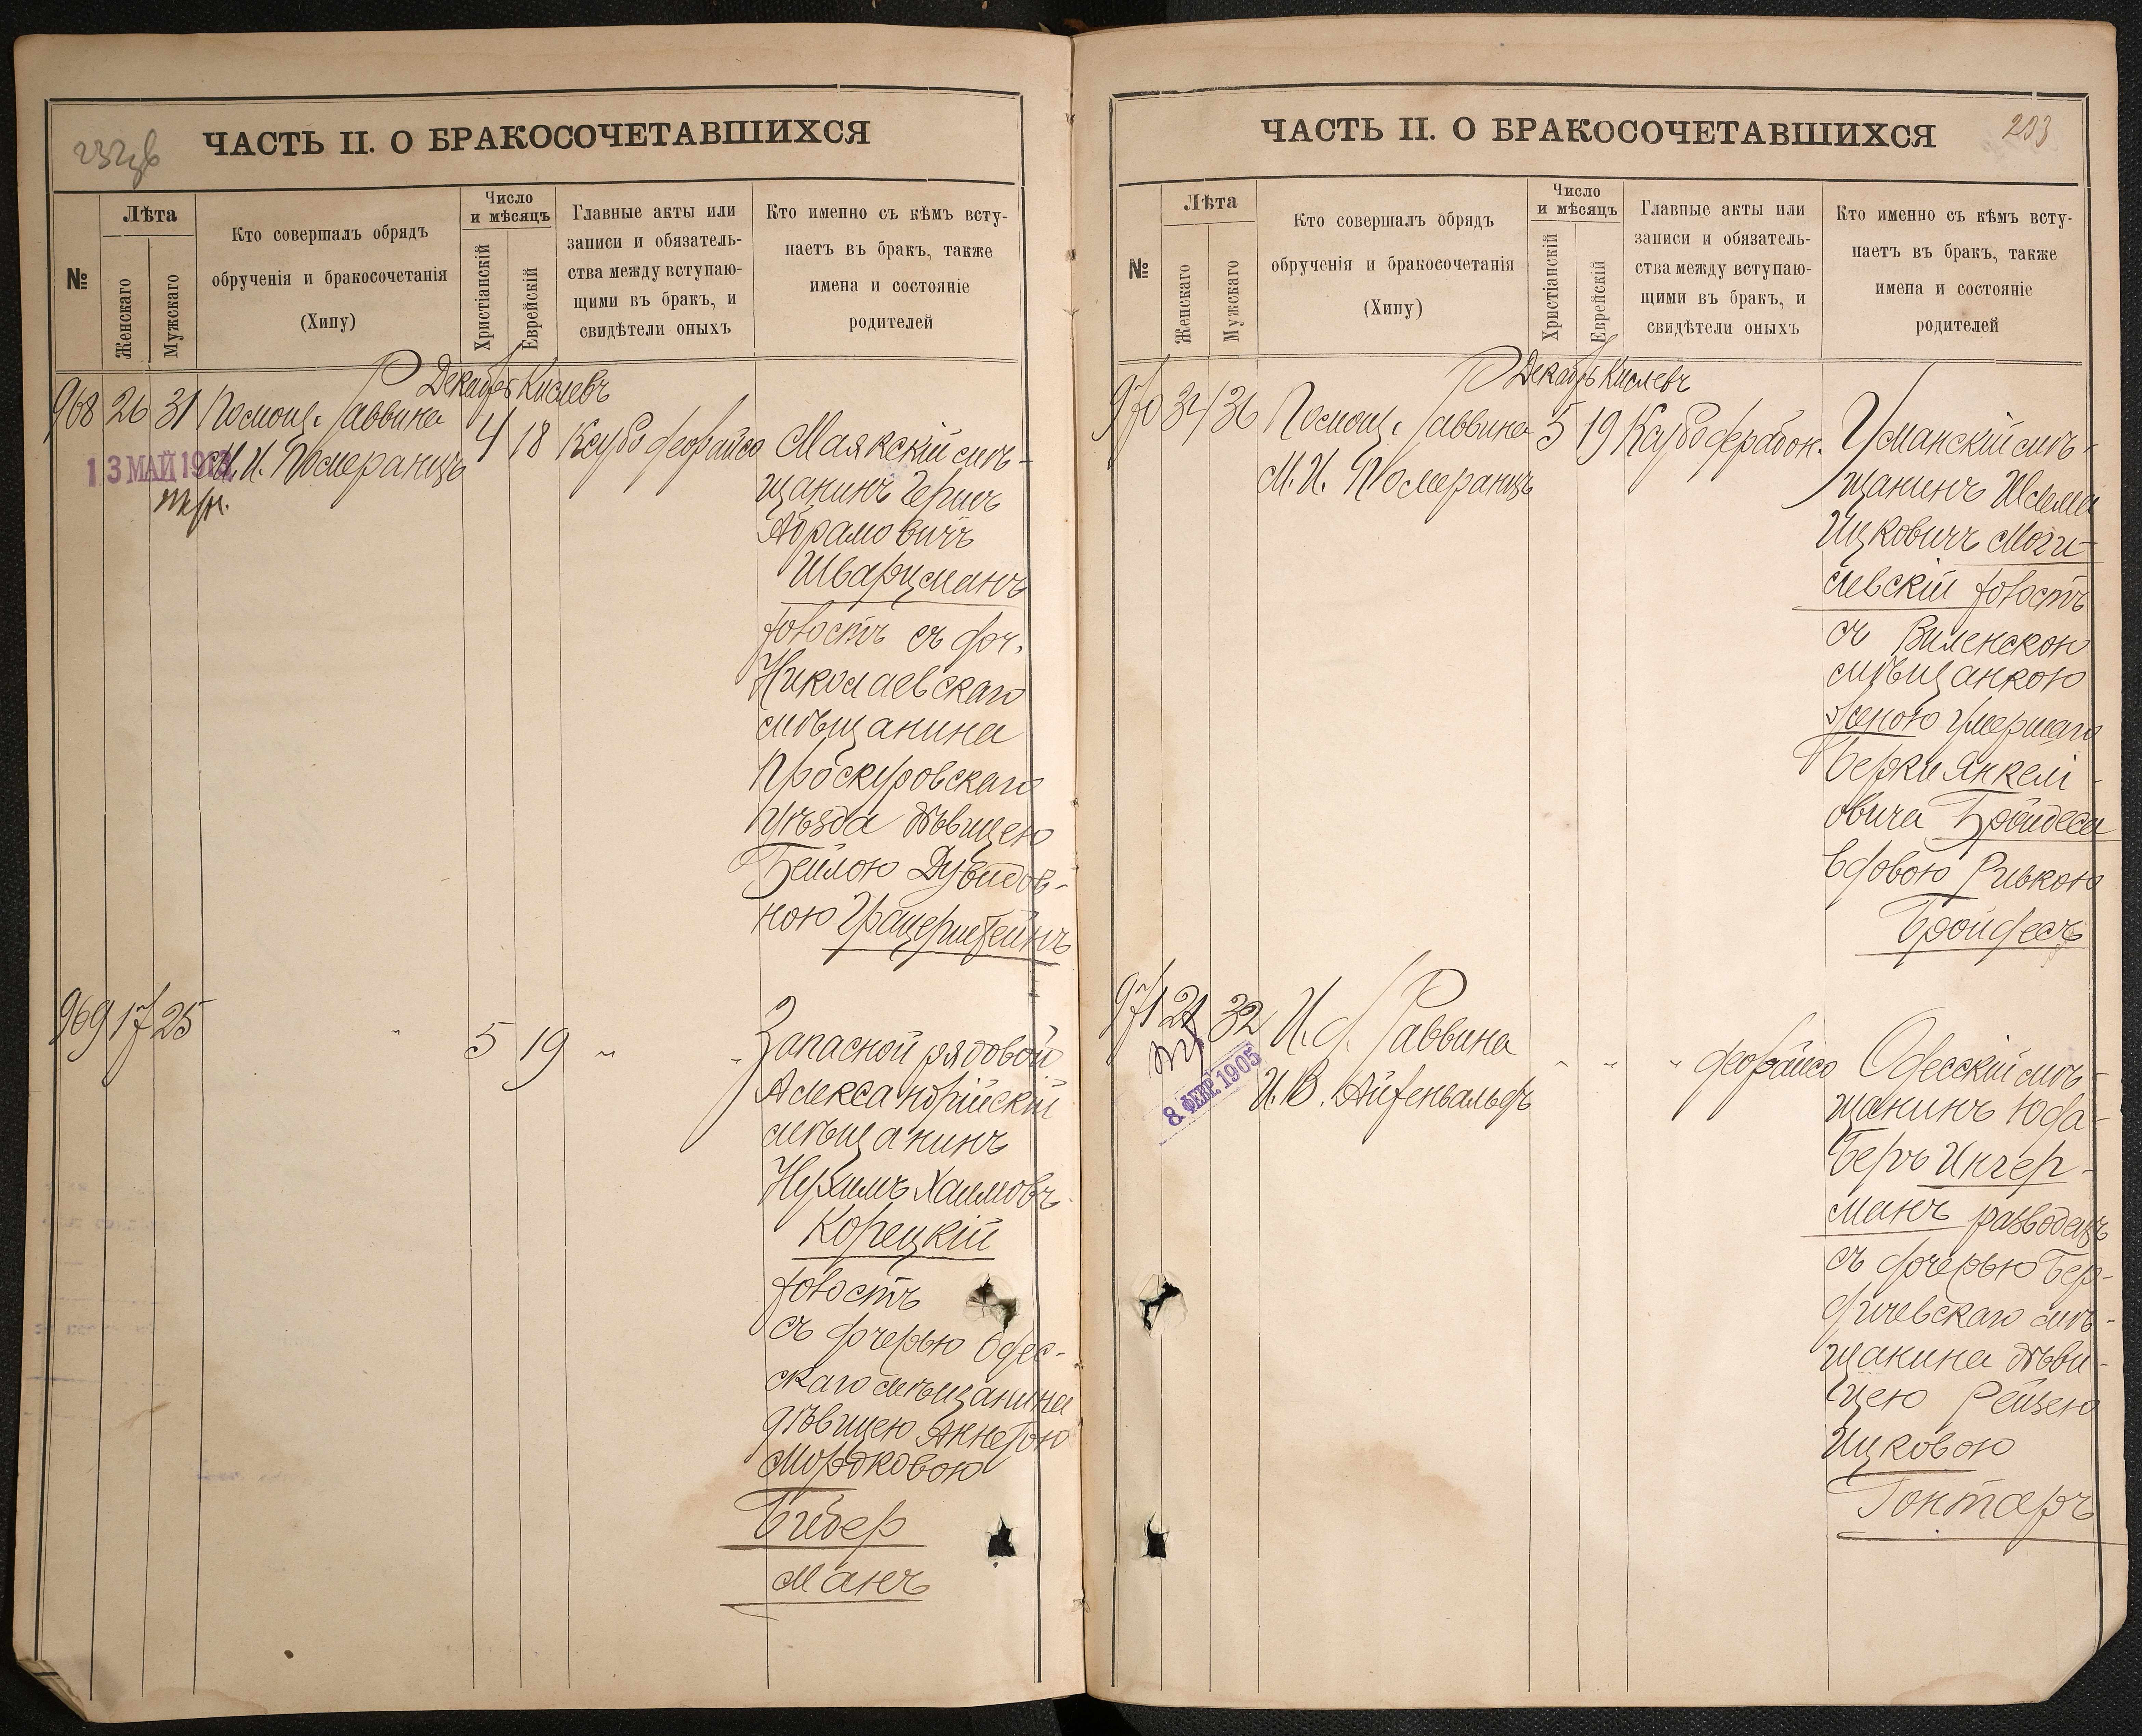 ЧАСТЬ II. О БРАКОСОЧЕТАВШИХСЯ
№
Лѣта
Женскаго
Мужскаго
Кто совершалъ обрядъ
обрученія и бракосочетанія
(Хипу)
Число
и мѣсяцъ
Христіанскій
Еврейскій
Главные акты или
записи и обязатель-
ства между вступаю-
щими въ бракъ, и
свидѣтели оныхъ
Кто именно съ кѣмъ всту-
паетъ въ бракъ, также
имена и состояніе
родителей
Декабрь Кислевъ
968 26 31 Помощ. Раввина
М. И. Померанцъ
13 МАЙ
4 18
Маякскій мѣ-
щанинъ Герш
Абрамовичъ
Шварцманъ
холостъ съ доч.
Николаевскаго
мѣщанина
Проскуровскаго
уѣзда дѣвицею
Бейлою Дувидов-
ною
969 17 25 " 5 19 " "
Запасной рядовой
Александрійскій
мѣщанинъ
Нухимъ Хаимовъ
Корецкій
холостъ
съ дочерью Одес-
скаго мѣщанина
дѣвицею Аннетою
Мордковою
Бидер
манъ
ЧАСТЬ II. О БРАКОСОЧЕТАВШИХСЯ
203
№
Лѣта
Женскаго
Мужскаго
Кто совершалъ обрядъ
обрученія и бракосочетанія
(Хипу)
Число
и мѣсяцъ
Христіанскій
Еврейскій
Главные акты или
записи и обязатель-
ства между вступаю-
щими въ бракъ, и
свидѣтели оныхъ
Кто именно съ кѣмъ всту-
паетъ въ бракъ, также
имена и состояніе
родителей
Декабрь Кислевъ
970 34 36 Помощ. Раввина
М. И. Померанцъ
5 19
Уманскій мѣ-
щанинъ Шлема
Ицковичъ Моги-
левскій холостъ
съ Виленскою
мѣщанкою
женою умершаго
Берки Янкелі-
овича Бройдеса
вдовою Ривкою
Бройдесъ
971 21 32 И. д. Раввина
И. В. Айзенвальдъ
8 ФЕВР. 1905
" " "
Одесскій мѣ-
щанинъ Юда-
Беръ Ингер-
манъ разводецъ
съ дочерью Бер-
дичевскаго мѣ-
щанина дѣви-
цею Рейзею
Ицковою
Гонтаръ